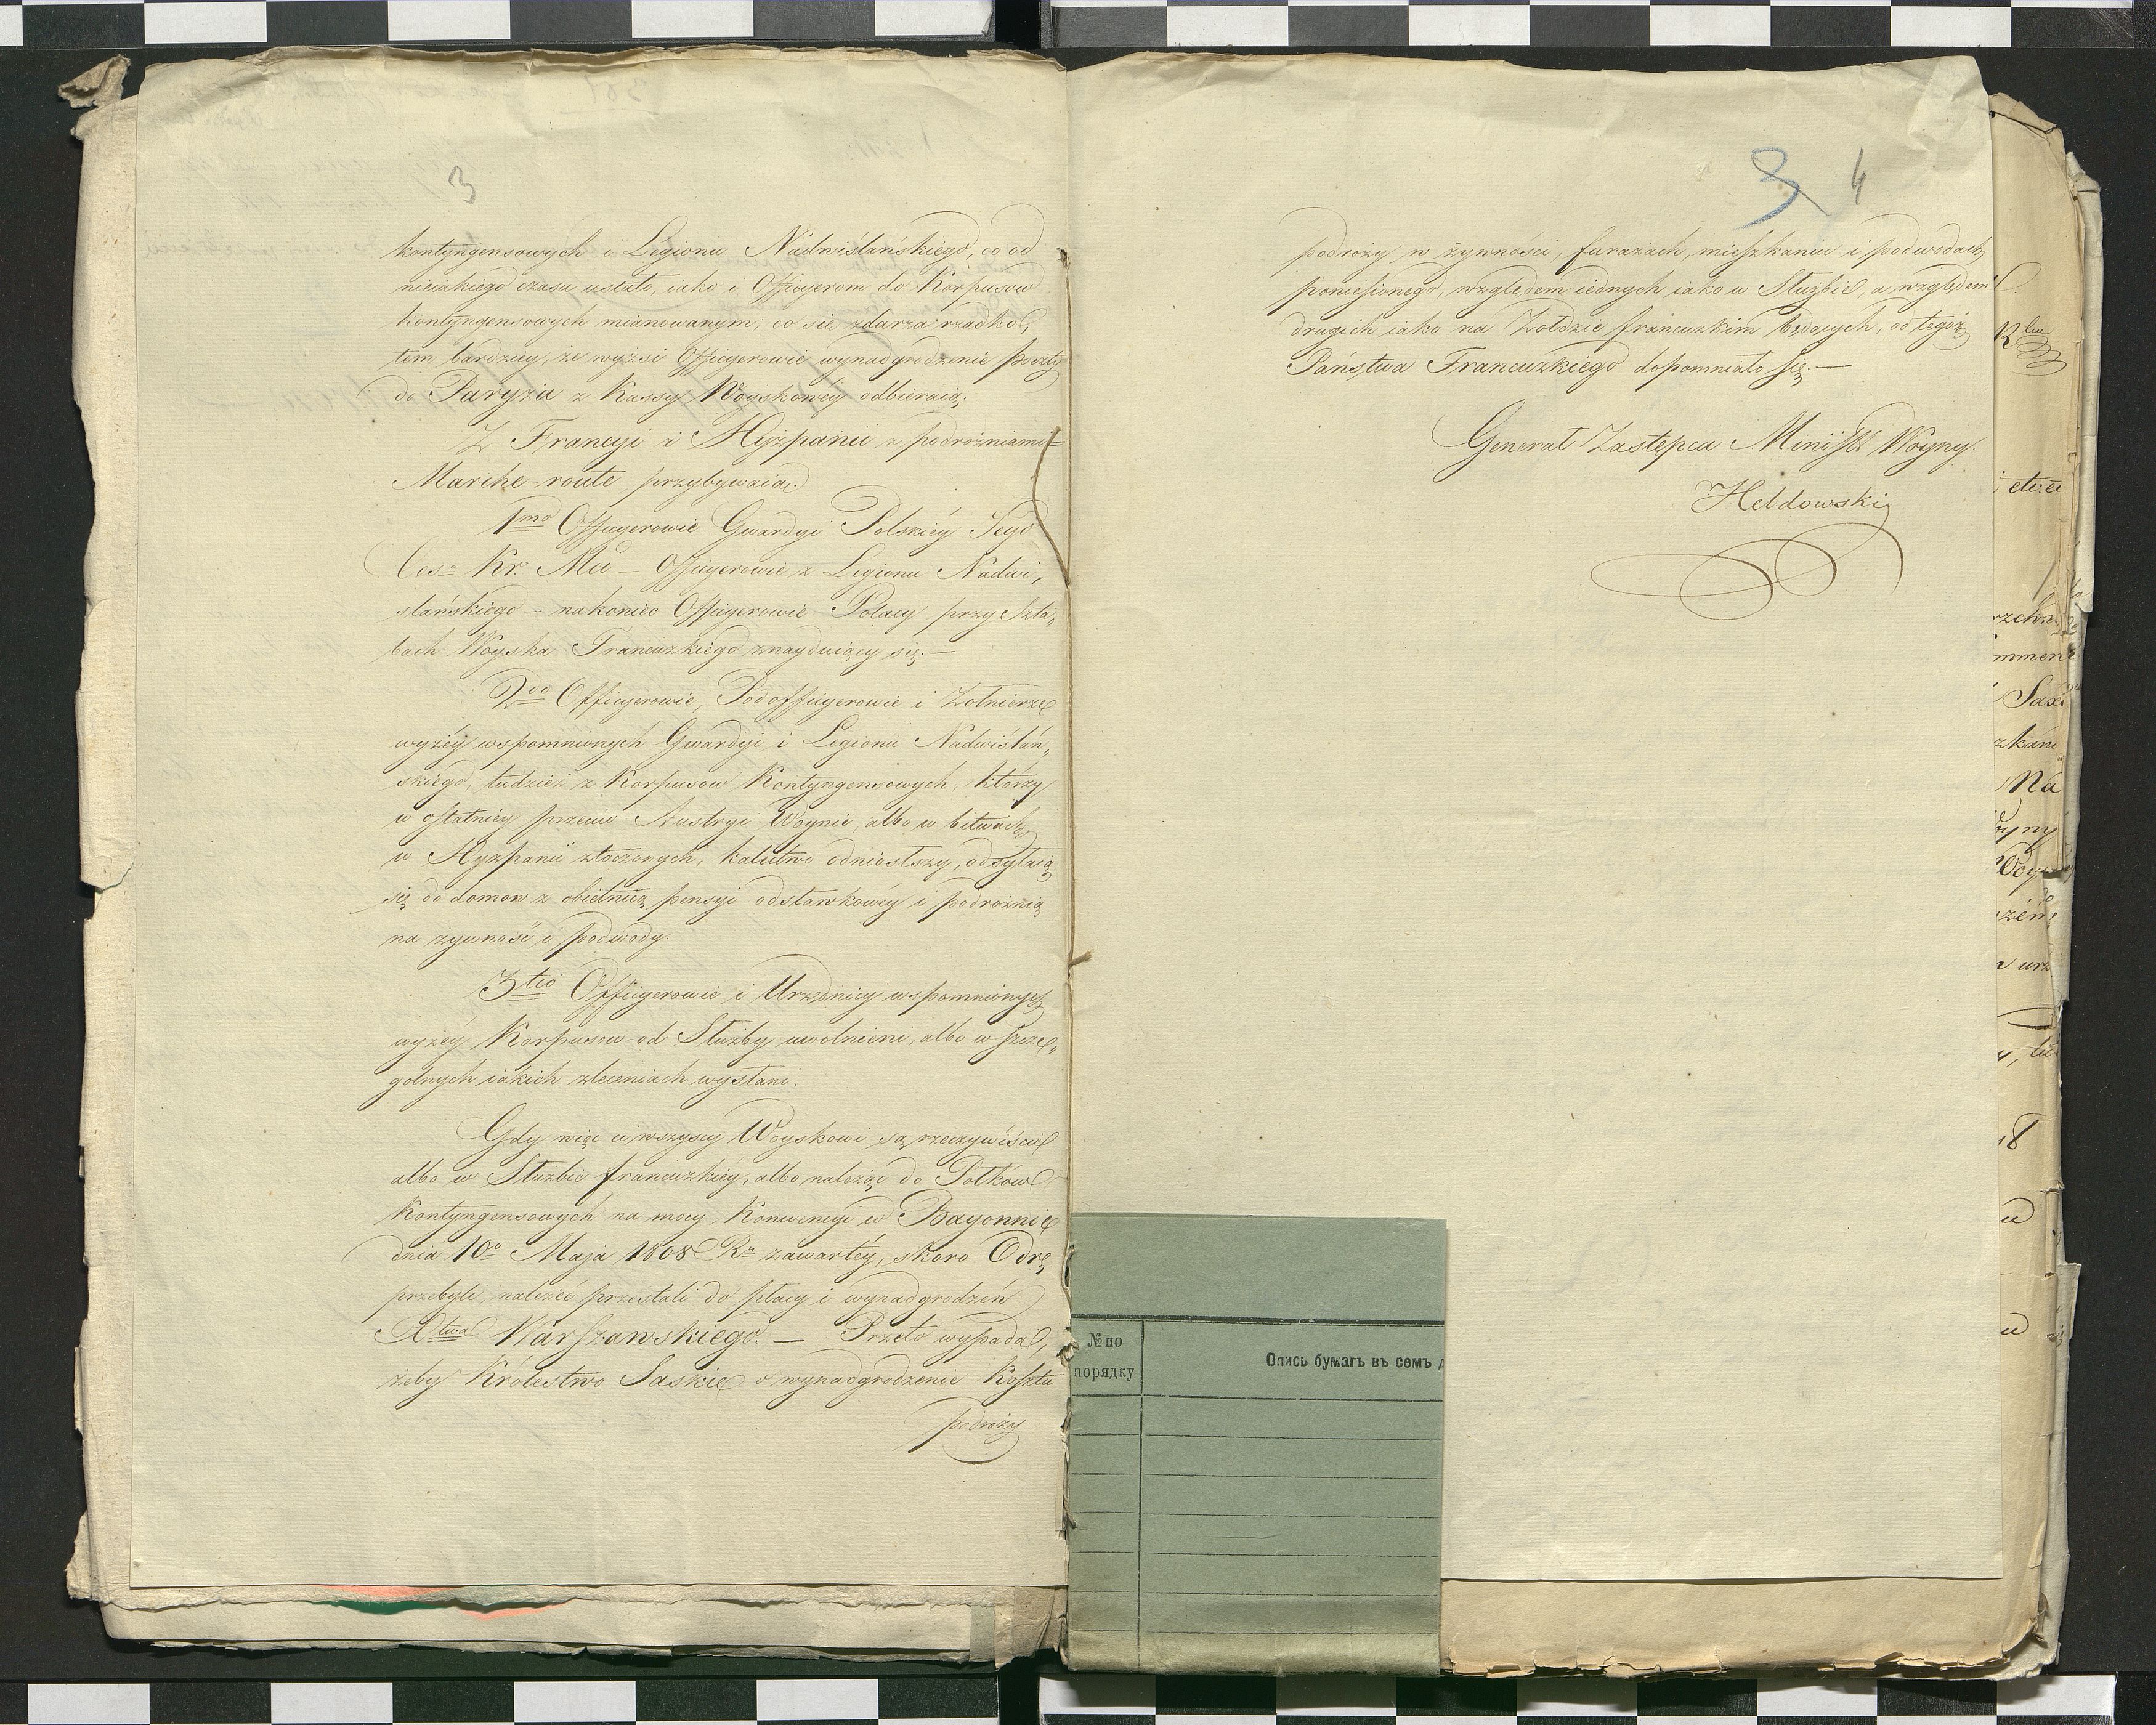 3
kontyngensowych i Legionu Nadwiślańskiego, co od
nieiakiego czasu ustało, iako i Officyerom do Korpusow
kontyngensowych mianowanym; co się zdarza rzadko,
tem bardziey, że wyżsi Officyerowie wynadgrodzenie poczty
do Paryża z Kassy Woyskowey odbieraią.
Z Francyi i Hyzpanii z podrożniami=
Marche-route przybywaią.
1mo Officyerowie Gwardyi Polskiéy Jego
Ces: Kr: Mci – Officyerowie z Legionu Nadwi,
slańskiego – nakoniec Officyerowie Polacy przy Szta„
bach Woyska Francuzkiego znayduiący się. –
2do Officyerowie, Podofficyerowie i Zołnierze
wyżéy wspomnionych Gwardyi i Legionu Nadwiślań„
skiego, tudzież z Korpusow Kontyngensowych, którzy
w ostatniey przeciw Austryi Woynie, albo w bitwach
w Hyzpanii ztoczonych, kalectwo odniosłszy, odsyłaią
się do domow z obietnicą pensyi odstawkowéy i podrożnią
na żywność i podwody.
3tio Officyerowie i Urzędnicy wspomnionych
wyżéy Korpusow od Służby uwolnieni, albo w szcze„
golnych iakich zleceniach wysłani.
Gdy więc ci wszyscy Woyskowi są rzeczywiście
albo w Służbie francuzkiéy, albo należąc do Półkow
Kontyngensowych na mocy Konwencyi w Bayonnie
dnia 10o Maja 1808 Ru zawartéy, skoro Odrę
przebyli, należéć przestali do płacy i wynadgrodzeń
Xtwa Warszawskiego. – Przeto wypada,
żeby Królestwo Saskie o wynadgrodzenie Kosztu
podroży
3 4
podroży w żywności, furażach, mieszkaniu i podwodach
poniesionego, względem iednych iako w Służbie, a względem
drugich iako na Zołdzie francuzkim będących, od tegóż
Państwa Francuzkiego dopomniało się. –
Generał Zastępca Ministra Woyny.
Hebdowski
№ по
порядку
Опись бумагъ въ семъ д